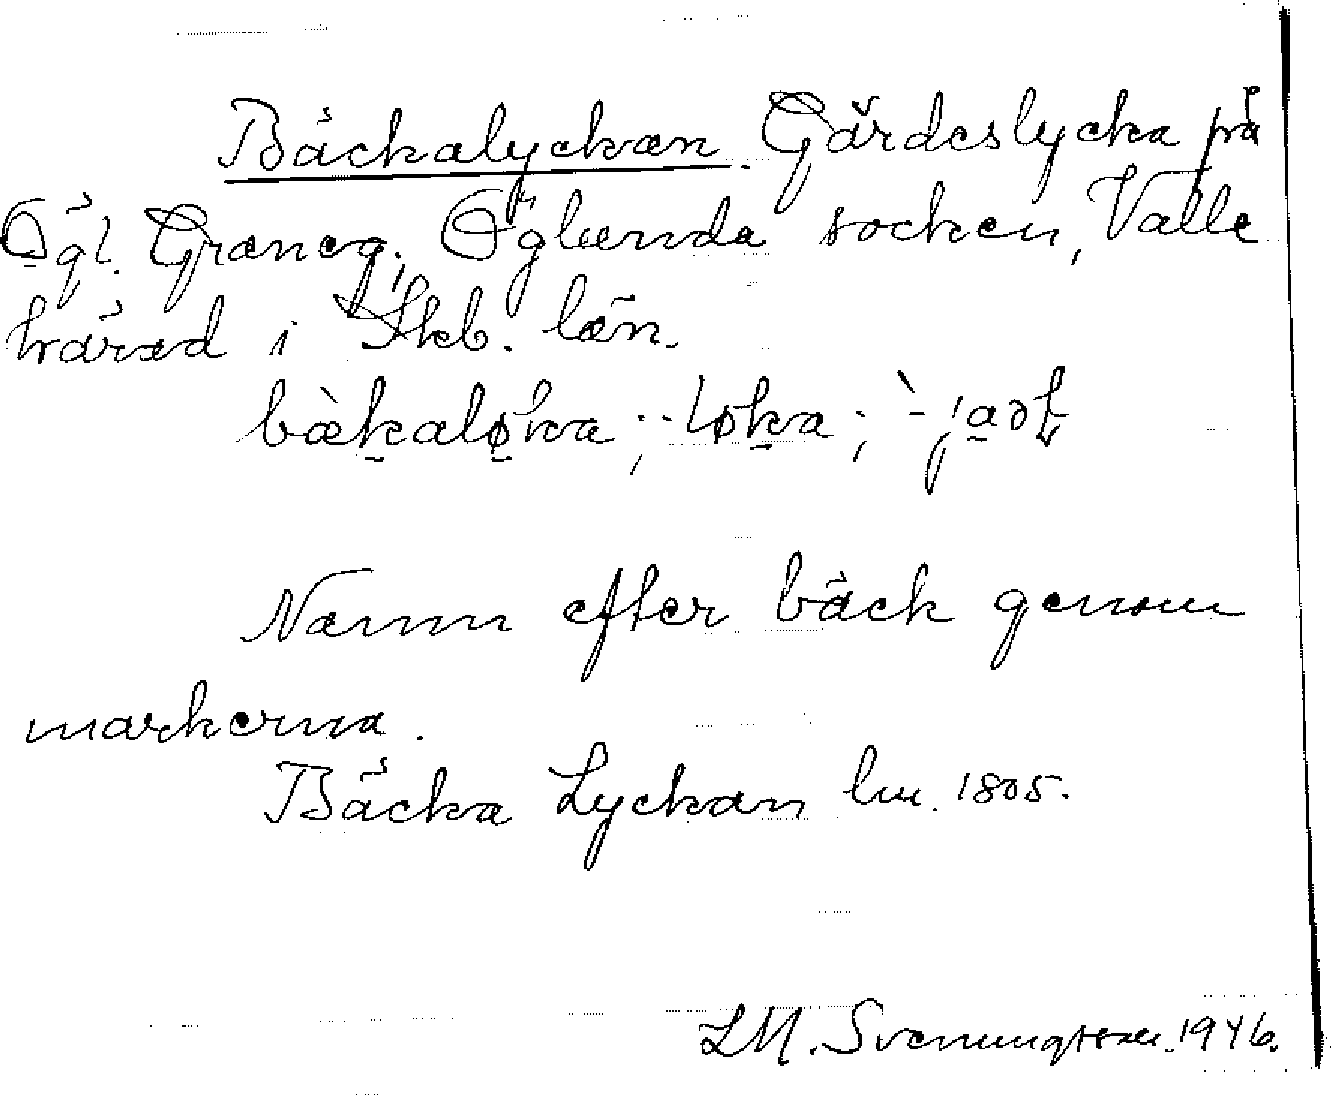 Bäckalyckan. Gärdeslycka på
Ögl. Graneg; Öglunda socken, Valle
härad i Skb. län.
bækaløka; -løka;
Namn efter bäck genom
markerna.
Bäcka Lyckan lm. 1805.
LM. Svenungsson. 1946.